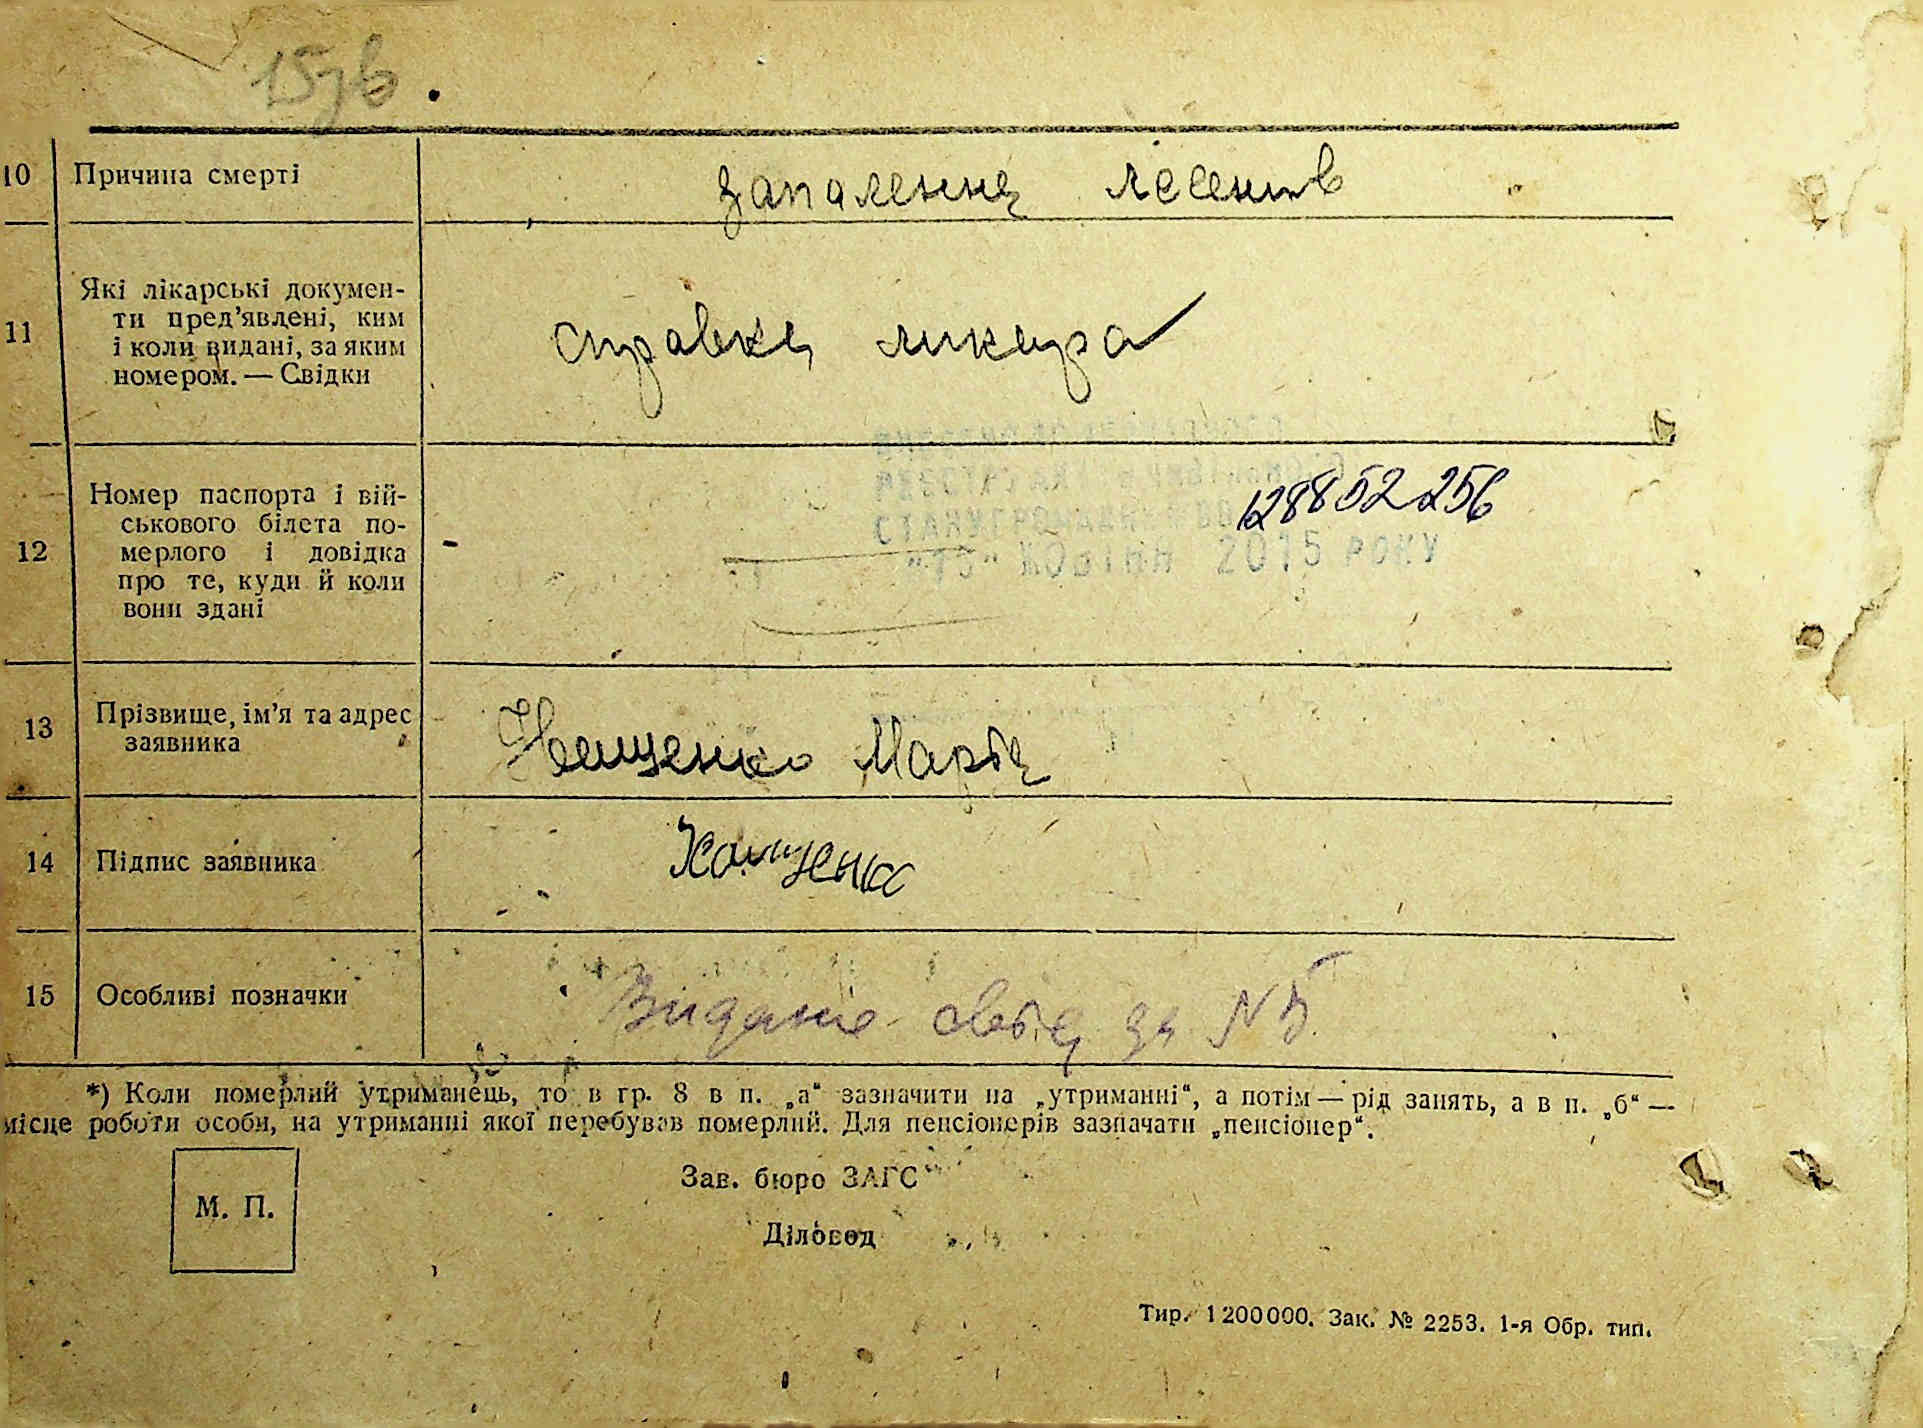 15зв
10 Причина смерті запалення лесенив
11 Які лікарські докумен-
ти пред’явлені, ким
і коли видані, за яким
номером. — Свідки
справка ликаря
12 Номер паспорта і вій-
ськового білета по-
мерлого і довідка
про те, куди й коли
вони здані
-
СТАНУ ГРОМАДЯН
128852256
"15" ЖОВТНЯ 2015 РОКУ
13 Прізвище, ім’я та адрес
заявника
Марія
14 Підпис заявника
15 Особливі позначки Видане за N
*) Коли померлий утриманець, то в гр. 8 в п. „а“ зазначити на „утриманні“, а потім — рід занять, а в п. „б“ —
місце роботи особи, на утриманні якої перебував померлий. Для пенсіонерів зазначати „пенсіонер“.
М. П.
Зав. бюро ЗАГС
Діловод
Тир. 1200000. Зак. № 2253. 1-я Обр. тип.